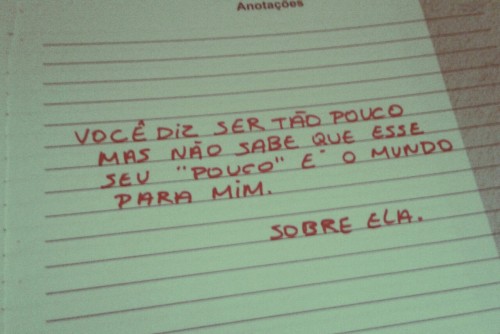 Anotações
VOCÊ DIZ SER TÃO POUCO
MAS NÃO SABE QUE ESSE
SEU "POUCO" É O MUNDO
PARA MIM.
SOBRE ELA.